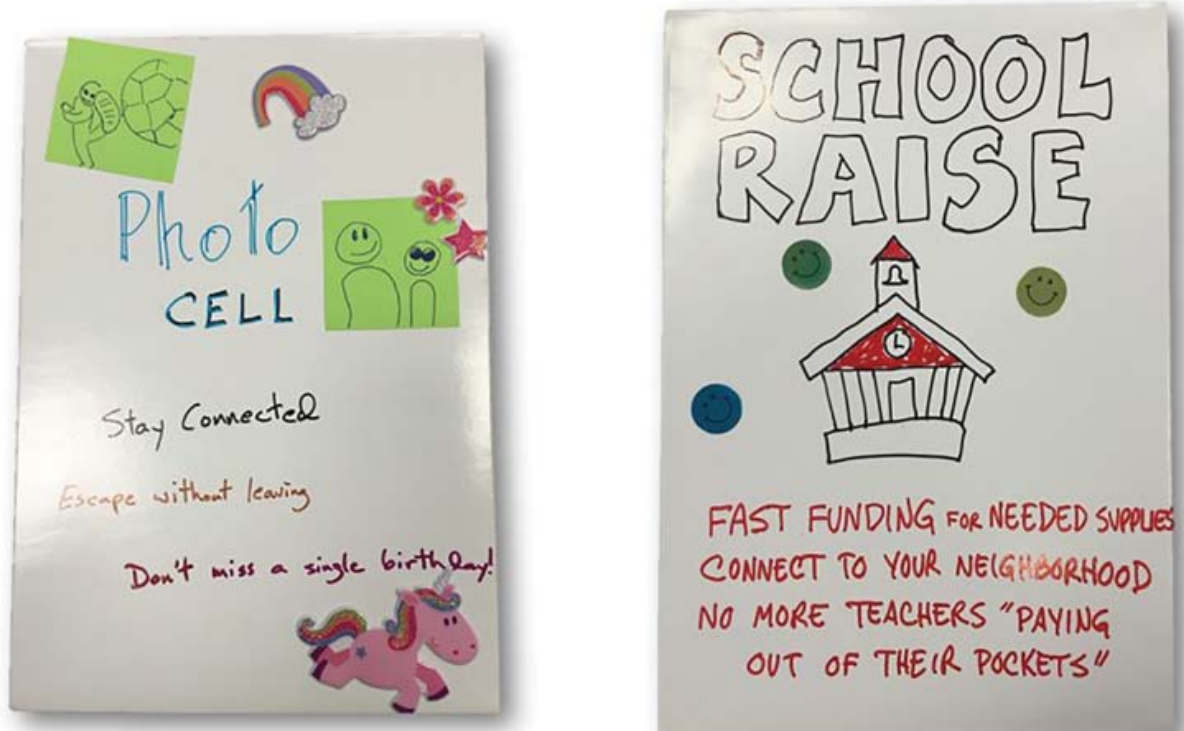 Photo
CELL
Stay Connected
Escape without leaving
Don't miss a single birthday!
SCHOOL
RAISE
FAST FUNDING FOR NEEDED SUPPLIES
CONNECT TO YOUR NEIGHBORHOOD
NO MORE TEACHERS "PAYING
OUT OF THEIR POCKETS"